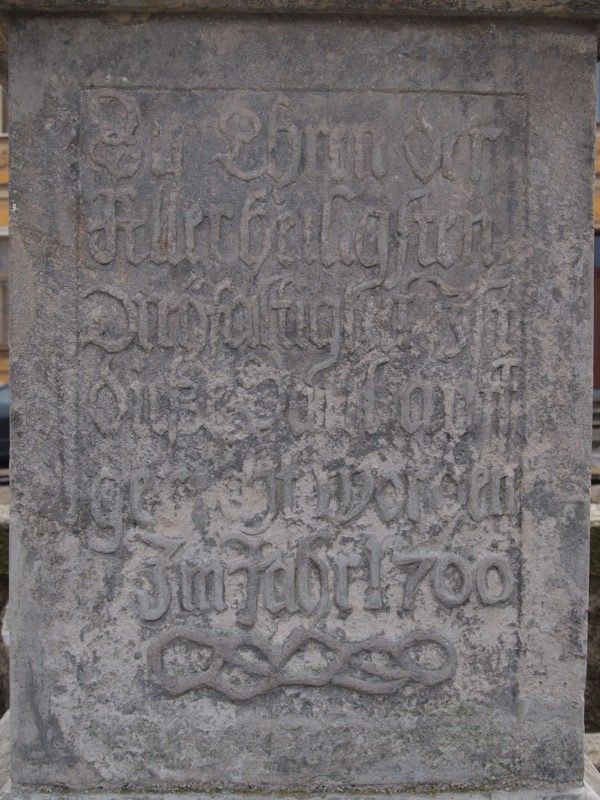 Zu Ehren der
Allerheiligsten
Dreyfaltigkeit Ist
diese Saul auff
gericht worden
Im Jahr 1700